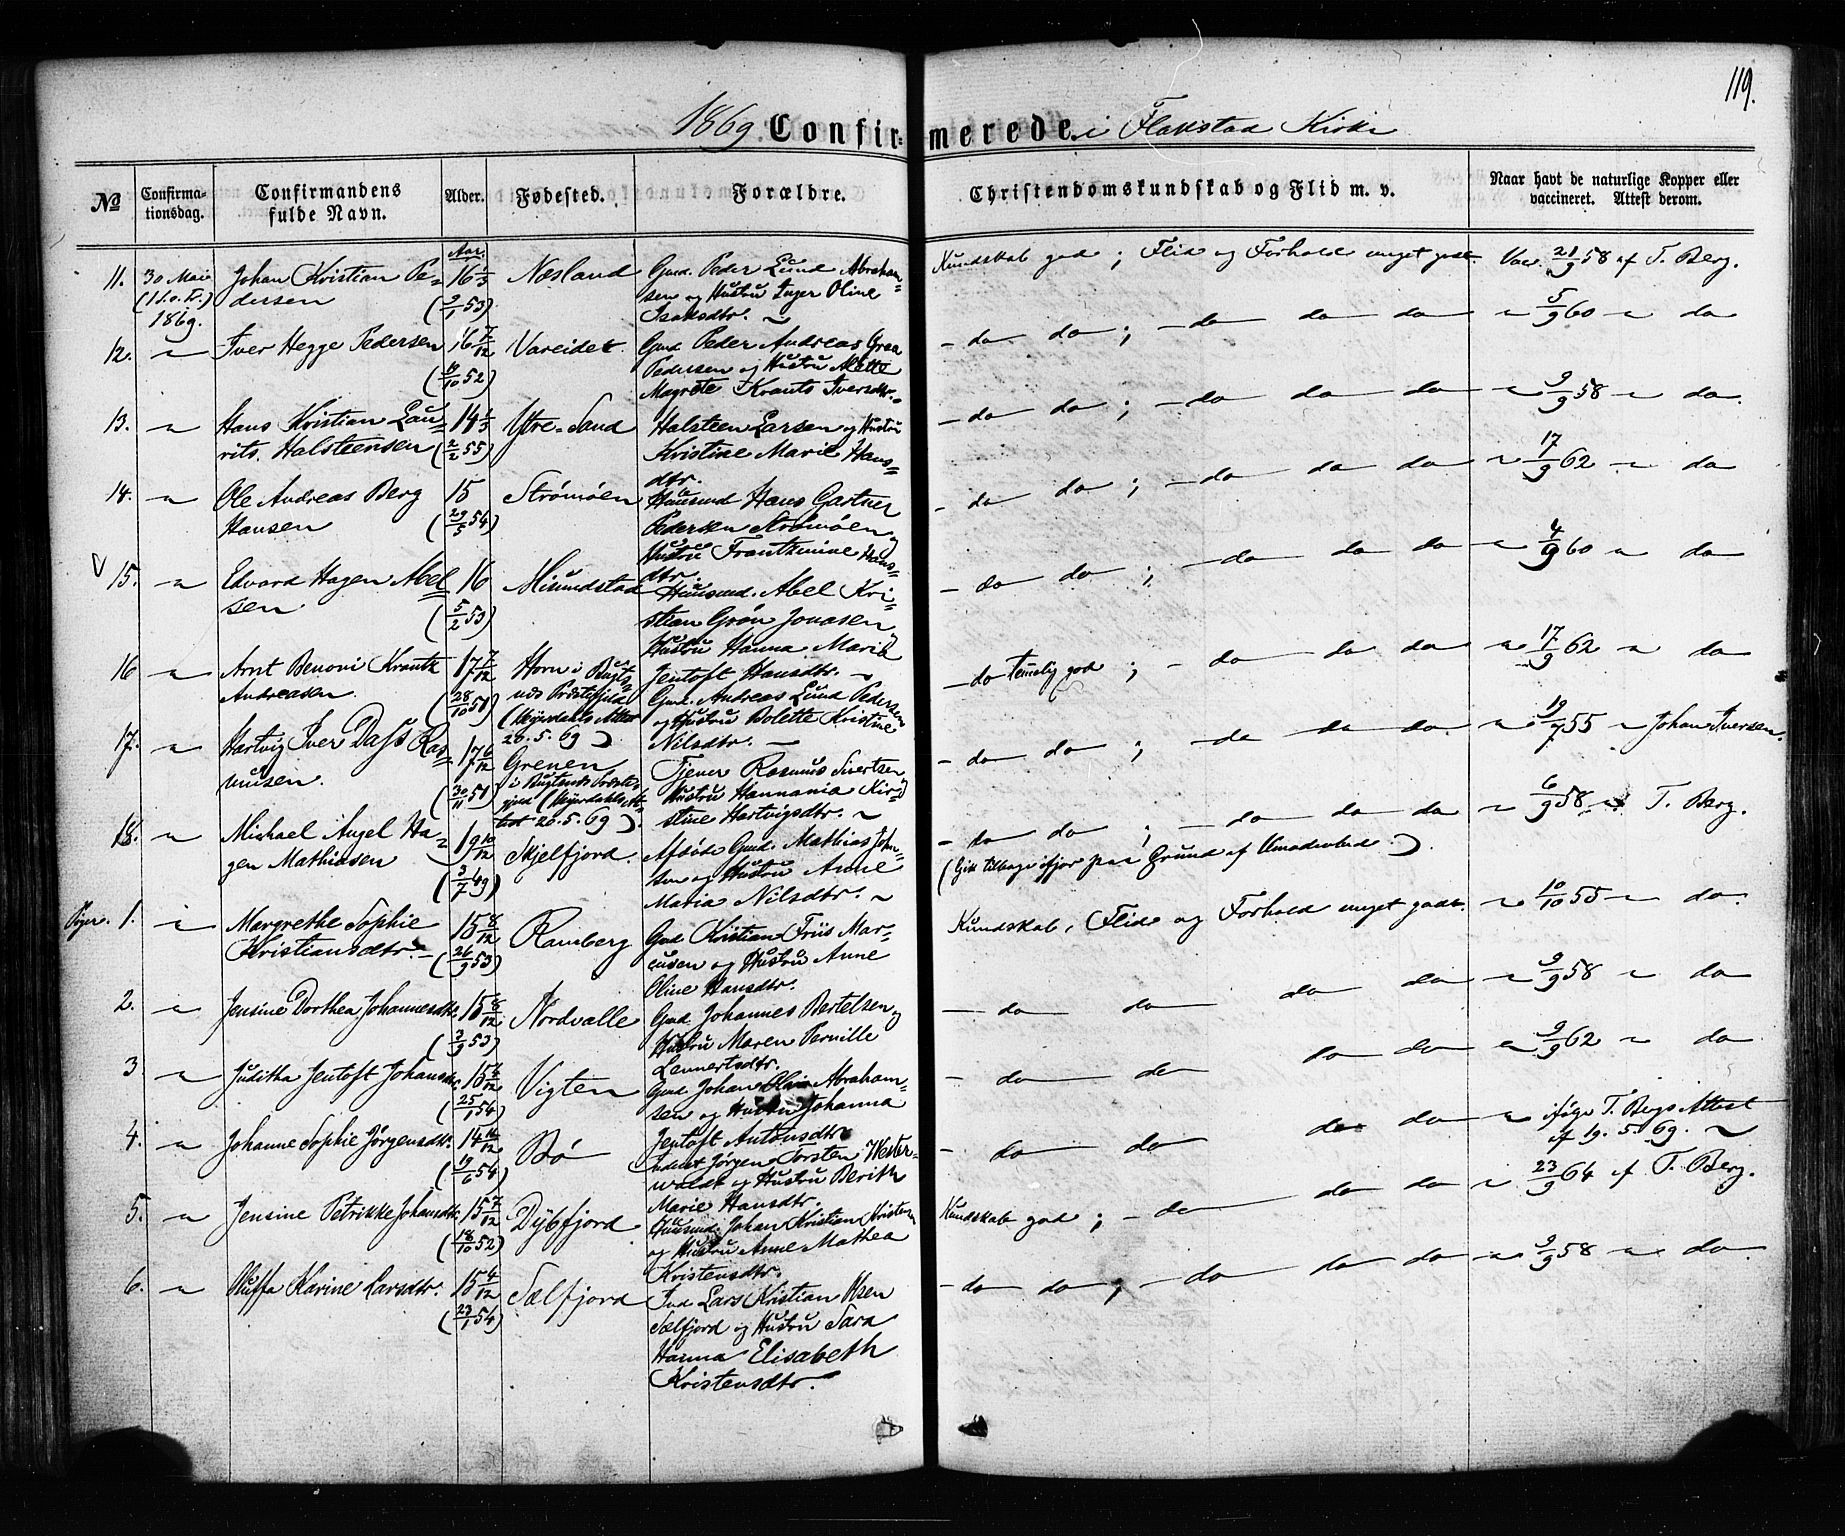 119.
1869. Confirmerede i Flakstad Kirke
No
Confirmationsdag.
Confirmandens fulde Navn.
Alder.
Fødested.
Forældre.
Christendomskundskab og Flid m. v.
Naar havt de naturlige Kopper eller vaccineret. Attest derom.
Aar.
11. 30 Mai Johan Kristian Pe- 16 1/3 Næsland Gmd. Peder Lund Abraham= Kundskab god; Flid og Forhold meget godt. Vac. 21/9 58 af T. Berg.
(1 s. e. Tr.) dersen (9/1 53) sen og Hustru Inger Oline
1869. Isaksdtr. ~
12. " Iver Hegge Pedersen 16 7/12 Vareidet Gmd Peder Andreas Graa - do do; - do do do " 5/9 60 " do
(19/10 52) Pedersen og Hustru Mette
Magrete Krants Iversdtr.
13. " Hans Kristian Lau= 14 1/3 Ytre=Sand Halsteen Larsen og Hustru - do do; - do do do " 9/9 58 " do.
rits. Halsteensen (2/2 55) Kristine Marie Hans=
dtr.
14. " Ole Andreas Berg 15 Strømøen Huusmd Hans Gartner - do do; - do do do " 17/9 62 " do
Hansen (29/5 54) Pedersen Strømøen og
Hustru Frantzmine Hans=
dtr.
V 15. " Edvard Hagen Abel 16 Misundstad Huusmd. Abel Kri- - do do; - do do do " 4/9 60 " do
sen. (5/2 53) stian Grøn Jonasen og
Hustru Hanna Maria
Jentoft Hansdtr. ~
16 " Arnt Benoni Krantz 17 7/12 Horn i Bugts= - do temelig god; - do do do " 17/9 62 " do
Andreasen. (28/10 51) nes Præstegjeld Gmd. Andreas Lund Pedersen
(Meyerdahls Attest og Hustru Bolette Kristine
20. 5. 69) Nilsdtr. ~
17. " Hartvig Iver Dass Ras= 17 6/12 Grenen Tjener Rasmus Sivertsen - do do; - do do do. " 19/7 55 " Johan Iversen.
musen. (30/11 51) Hustru Hannania Kir=
20. 5. 69). stine Hartvigsdtr. ~
18. " Michael Angel Ha= 19 10/12 Skjelfjord. Afdøde Gmd. Mathias John= - do do; - do do do " 6/9 58 af T. Berg.
gen Mathiasen (3/7 49) sen og Hustru Anne (Gik tilbage ifjor paa Grund af Umodenhed.)
Maria Nilsdtr. ~
Piger. 1. " Margrethe Sophie 15 8/12 Ramberg Gmd Kristian Friis Mar= Kundskab, Flid og Forhold meget godt. " 10/10 55 " do.
Kristiansdtr. - (26/9 53) cusen og Hustru Anne
Oline Hansdtr.
2. " Jensine Dorthea Johannesdtr. 15 8/12 Nordvalle Gmd. Johannes Bertelsen og - do do do do " 9/9 58 " do
(3/9 53) Hustru Maren Pernille
Lennertsdtr.
3. " Juditha Jentoft Johansdtr. 15 4/12 Vigten Gmd Johan Abraham= - do do do do " 9/9 62 " do
(25/1 54) sen og Hustru Johanna
Jentoft Antonsdtr
4. " Johanne Sophie Jørgensdtr. 14 11/12 Bø Jørgen Torsten Wester= - do do do do " ifølge T. Bergs Attest
(19/6 54) waldt og Hustru Berith af 19. 5. 69. ~
Marie Hansdtr.
5. " Jensine Petrikke Johansdtr. 15 7/12 Dybfjord Huusmd. Johan Kristian Kristensen Kundskab god; - do do do " 23/9 64 af T. Berg.
(18/10 52) og Hustru Anne Mathea
Kristensdtr.
6. " Oluffa Karine Larsdtr. 15 4/12 Sælfjord Lars Kristian Olsen - do do; - do do do " 9/9 58 " do.
(23/1 54) Sælfjord og Hustru Sara
Hanna Elisabeth
Kristensdtr.